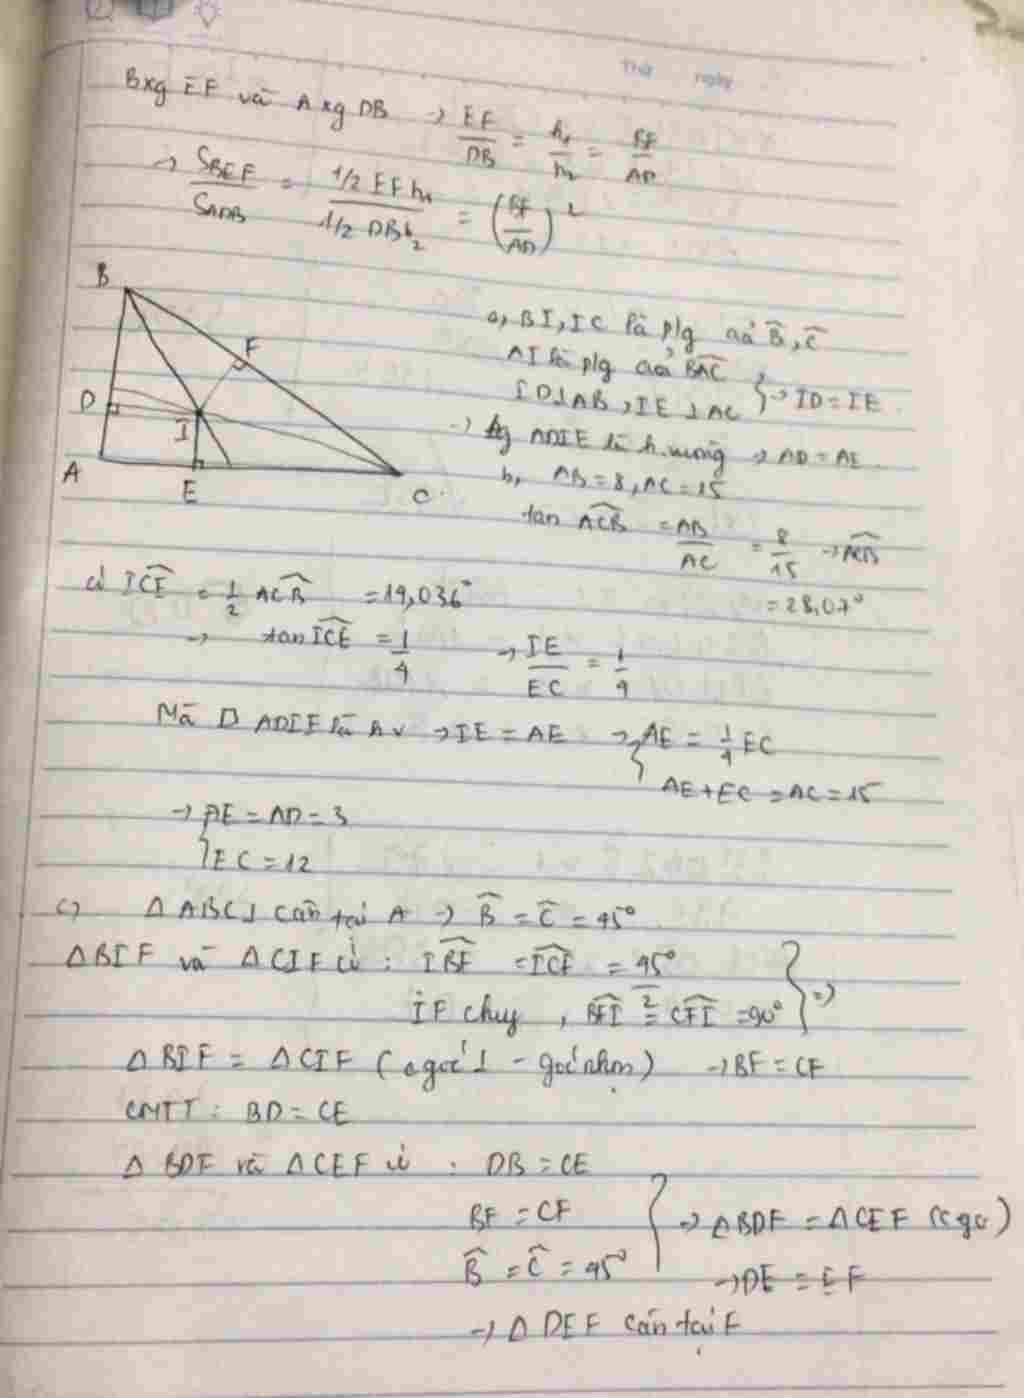 Thứ ngày
B xg EF và A xg DB → EF/DB = h₁/h₂ = BF/AD
→ S_BEF/S_ADB = (1/2 EF h₁)/(1/2 DB h₂) = (BF/AD)²
B
F
D
I
A
E
C
a, BI, IC là p/g của B̂, Ĉ
AI là p/g của BAC
ID⊥AB, IE⊥AC } → ID = IE
→ tg ADIE là h.vuông → AD = AE
b, AB = 8, AC = 15
tan ACB = AB/AC = 8/15 → ACB
= 28,07°
có ICE = 1/2 ACB = 14,036°
→ tan ICE = 1/4 → IE/EC = 1/4
Mà □ ADIE là hv → IE = AE → { AE = 1/4 EC
AE + EC = AC = 15
→ { AE = AD = 3
EC = 12
c) Δ ABC ⊥ cân tại A → B̂ = Ĉ = 45°
ΔBIF và ΔCIF có : IBF = ICF = 45°/2
IF chug , BFI = CFI = 90° } =>
Δ BIF = Δ CIF ( góc ⊥ - góc nhọn) → BF = CF
CMTT : BD = CE
Δ BDF và Δ CEF có : DB = CE
BF = CF
B̂ = Ĉ = 45° } → Δ BDF = Δ CEF (cgc)
→ DE = EF
→ Δ DEF cân tại F